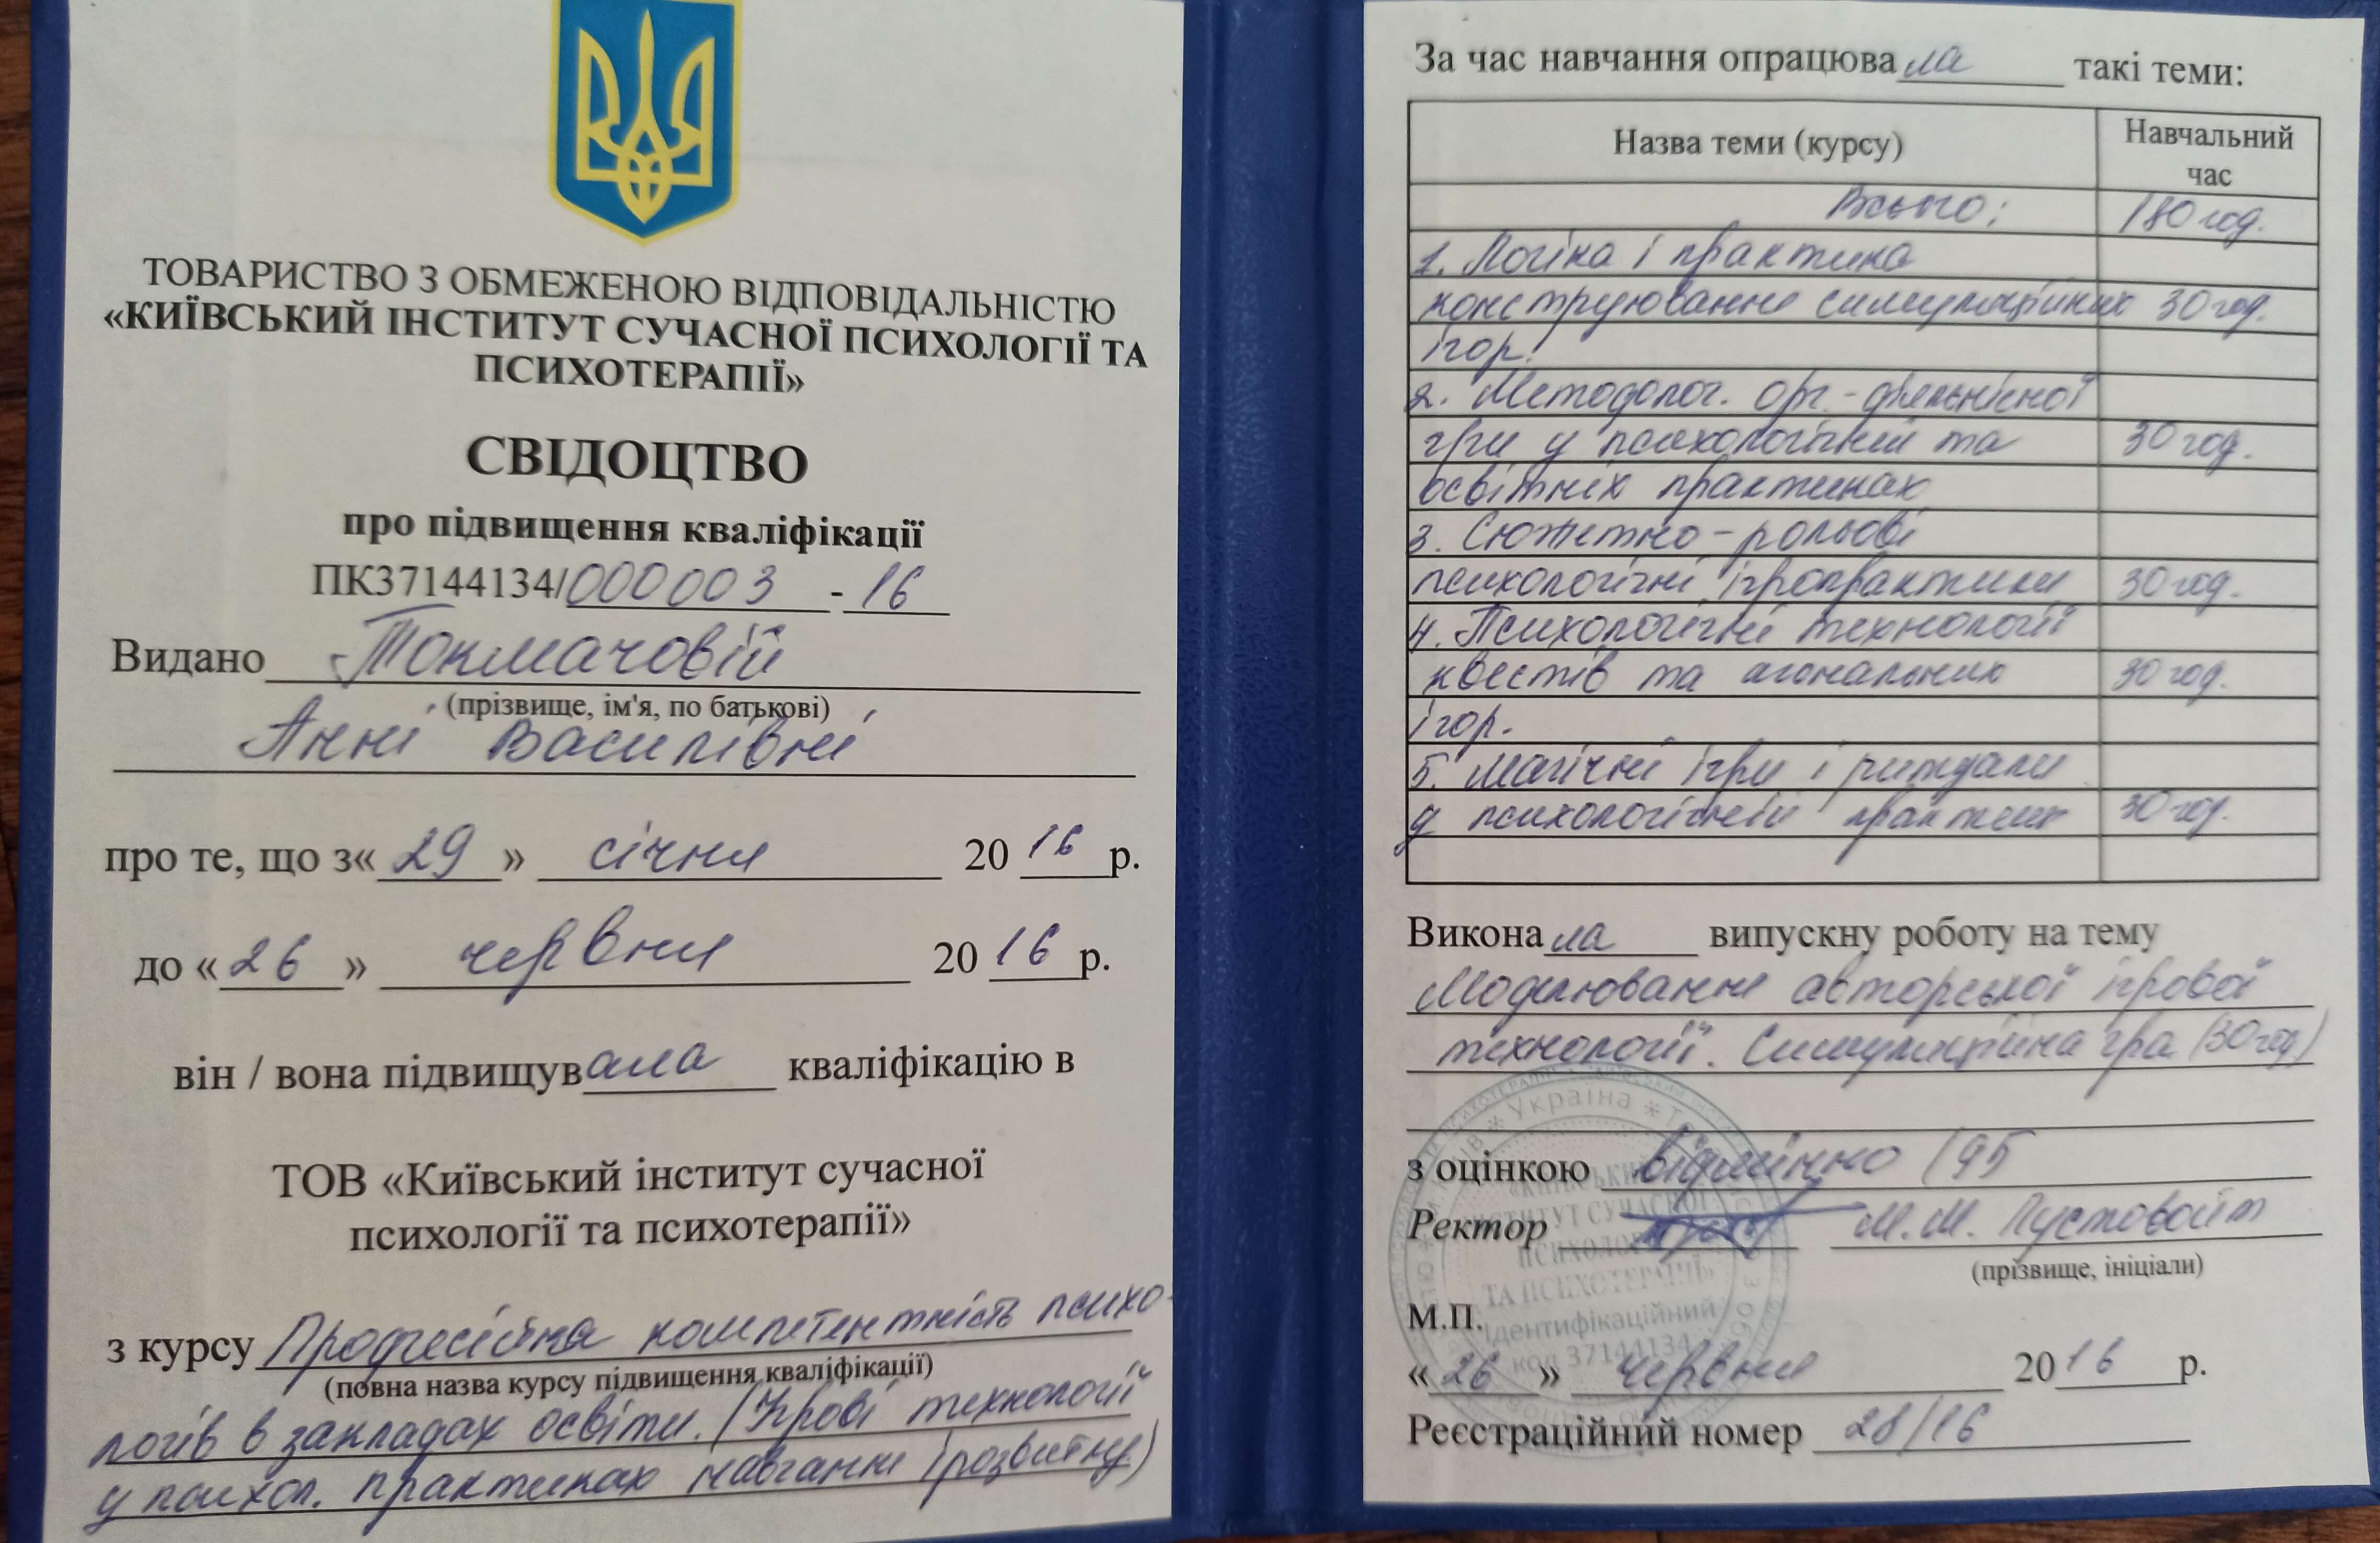 ТОВАРИСТВО З ОБМЕЖЕНОЮ ВІДПОВІДАЛЬНІСТЮ
«КИЇВСЬКИЙ ІНСТИТУТ СУЧАСНОЇ ПСИХОЛОГІЇ ТА
ПСИХОТЕРАПІЇ»
СВІДОЦТВО
про підвищення кваліфікації
ПК37144134/000003-16
Видано Токмачовій
(прізвище, ім'я, по батькові)
Анні Василівні
про те, що з«29» січня 2016р.
до «26» червня 2016р.
він / вона підвищувала кваліфікацію в
ТОВ «Київський інститут сучасної
психології та психотерапії»
з курсу Професійна компетентність психо-
(повна назва курсу підвищення кваліфікації)
логів в закладах освіти. (Ігрові технології
у психол. практиках навчання і розвитку)
За час навчання опрацювала такі теми:
Назва теми (курсу) Навчальний
час
Всього: 180 год.
1. Логіка і практика
конструювання симуляційних 30 год.
ігор.
2. Методолог. орг.-діяльнісної
гри у психологічній та 30 год.
освітніх практиках
3. Сюжетно-рольові
психологічні ігропрактики 30 год.
4. Психологічні технології
квестів та агональних 30 год.
ігор.
5. Магічні ігри і ритуали
у психологічній практиці 30 год.
Виконала випускну роботу на тему
Моделювання авторської ігрової
технології. Симуляційна гра (30 год)
з оцінкою відмінно /95
Ректор М.М. Пустовойт
(прізвище, ініціали)
М.П.
«26» червня 2016 р.
Реєстраційний номер 28/16
Україна
«КИЇВСЬКИЙ
ІНСТИТУТ СУЧАСНОЇ
ПСИХОЛОГІЇ
ТА ПСИХОТЕРАПІЇ»
Ідентифікаційний
код 37144134